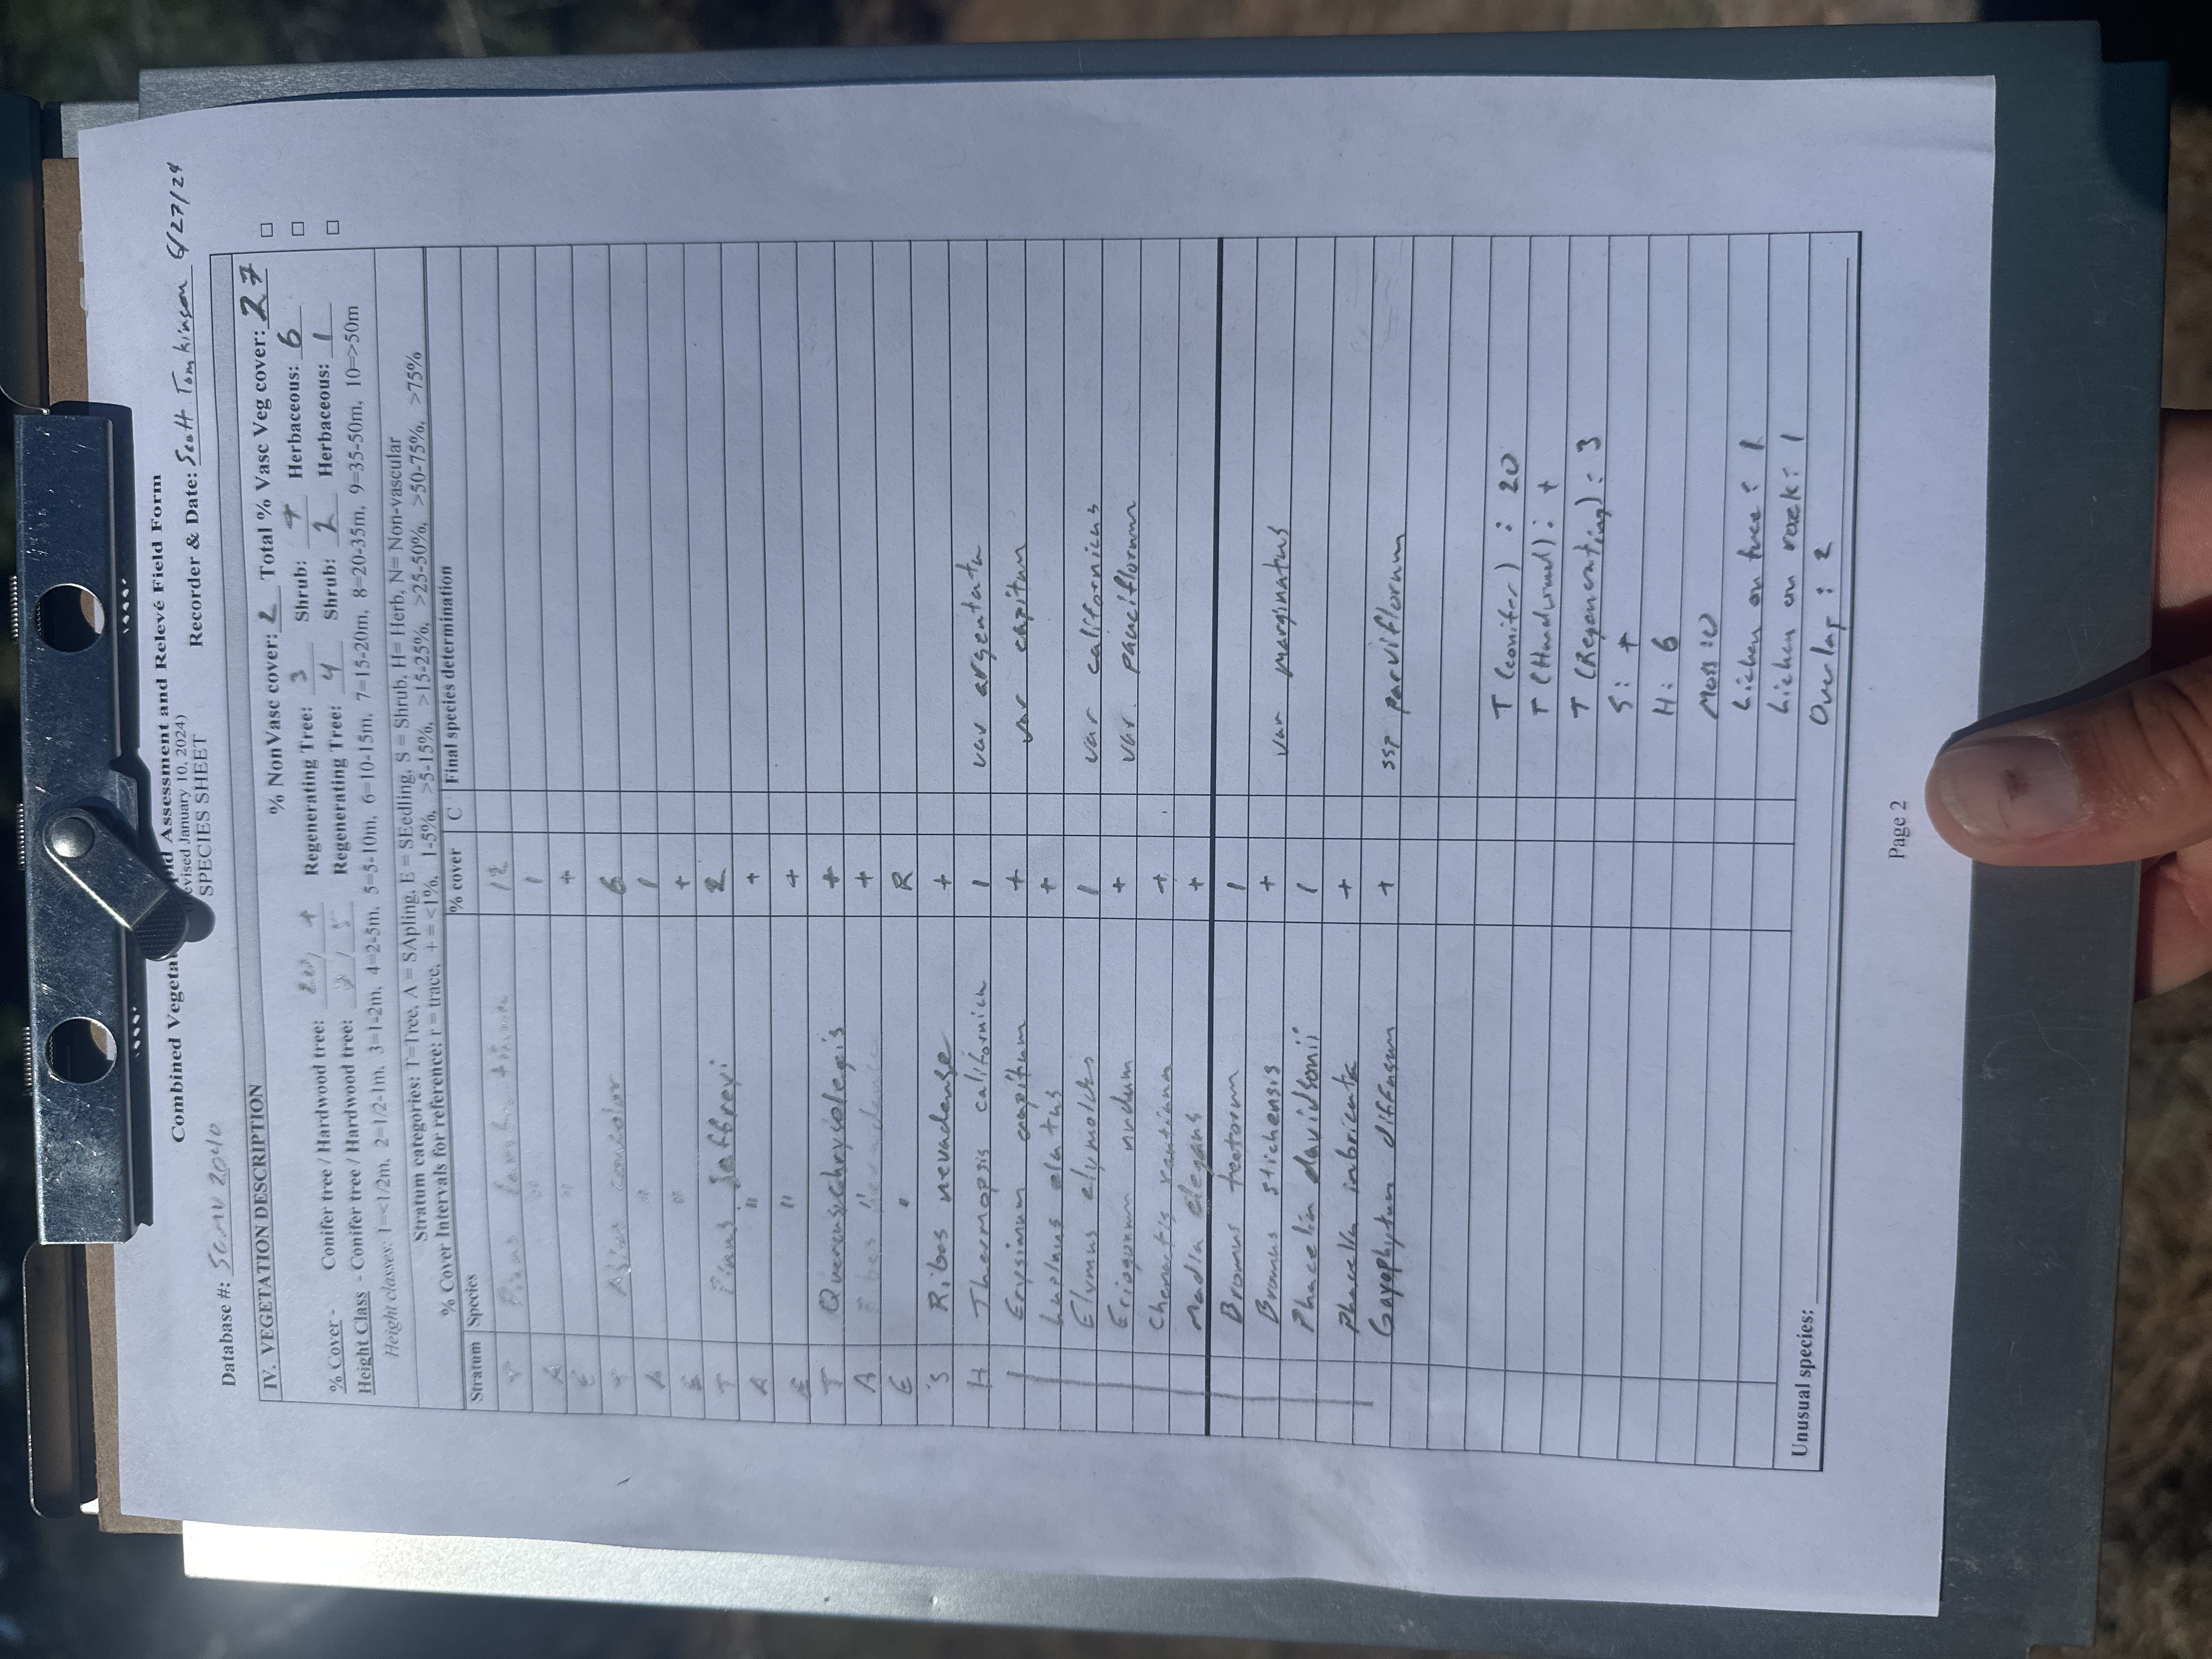 Combined Vegeta Assessment and Relevé Field Form
vised January 10, 2024)
SPECIES SHEET
Recorder & Date: Scott Tomkinson 6/27/24
Database #: 2040
IV. VEGETATION DESCRIPTION
% NonVasc cover: 2 Total % Vasc Veg cover: 27
% Cover - Conifer tree / Hardwood tree: 20 / + Regenerating Tree: 3 Shrub: + Herbaceous: 6
Height Class - Conifer tree / Hardwood tree: / Regenerating Tree: 4 Shrub: 2 Herbaceous: 1
Height classes: 1=<1/2m, 2=1/2-1m, 3=1-2m, 4=2-5m, 5=5-10m, 6=10-15m, 7=15-20m, 8=20-35m, 9=35-50m, 10=>50m
Stratum categories: T=Tree, A = SApling, E = SEedling, S = Shrub, H= Herb, N= Non-vascular
% Cover Intervals for reference: r = trace, + = <1%, 1-5%, >5-15%, >15-25%, >25-50%, >50-75%, >75%
Stratum Species % cover C Final species determination
T Pinus lambertiana 12
A " 1
E " +
T Abies concolor 6
A " 1
E " +
T Pinus Jeffreyi 2
A " +
E " +
T Quercus chrysolepis +
A +
E " R
S Ribes nevadense +
H Thermopsis californica 1 var argentata
Erysimum capitum + var capitum
Lupinus elatus +
Elymus elymoides 1 var californicus
Eriogonum nudum + var. pauciflorum
Chenactis xantiana +
Madia elegans +
Bromus tectorum 1
Bromus sitchensis + var marginatus
Phacelia davidsonii 1
Phacelia imbricata +
Gayophytum diffusum + ssp parviflorum
T (conifer) : 20
T (Hardwood) : +
T (Regenerating) : 3
S: +
H: 6
Moss: 0
Lichen on tree: 1
Lichen on rock: 1
Overlap : 2
Unusual species:
Page 2